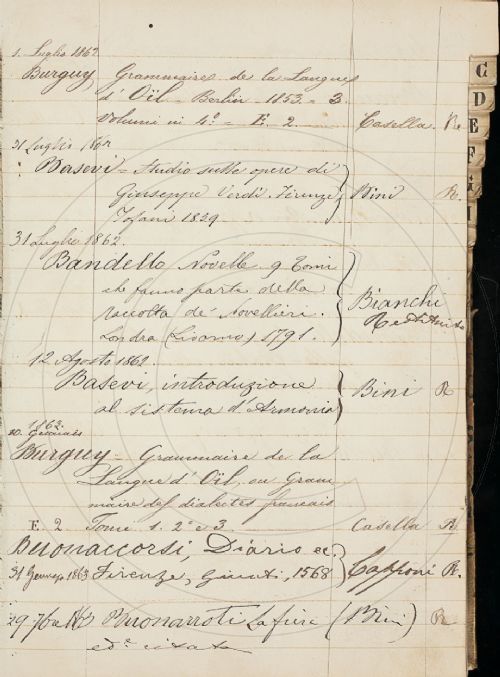 1. Luglio 1862
Burguy, Grammaires de la Langues
d' Oïl - Berlin - 1853. - 3.
Volumi in 4.º - E. 2 Casella R.
31 Luglio 1862
Basevi - Studio sulle opere di
Giuseppe Verdi. Firenze Bini R.
Tofani 1859
31 Luglio 1862.
Bandello Novelle 9 Tomi
che fanno parte della
raccolta de' Novellieri. Bianchi
Londra (Livorno) 1791. Restituito
12 Agosto 1862.
Basevi, introduzione
al sistema d'Armonia Bini R
1863.
20. Gennaio
Burguy - Grammaire de la
Langue d' Oïl, ou Gram
maire des dialectes francais
E. 2 Tome 1. 2º e 3 Casella R.
Buonaccorsi, Diario ec.
31 Gennajo 1863 Firenze, Giunti, 1568 Capponi R.
Buonarroti La fiera (Bini) R
ed.e citata